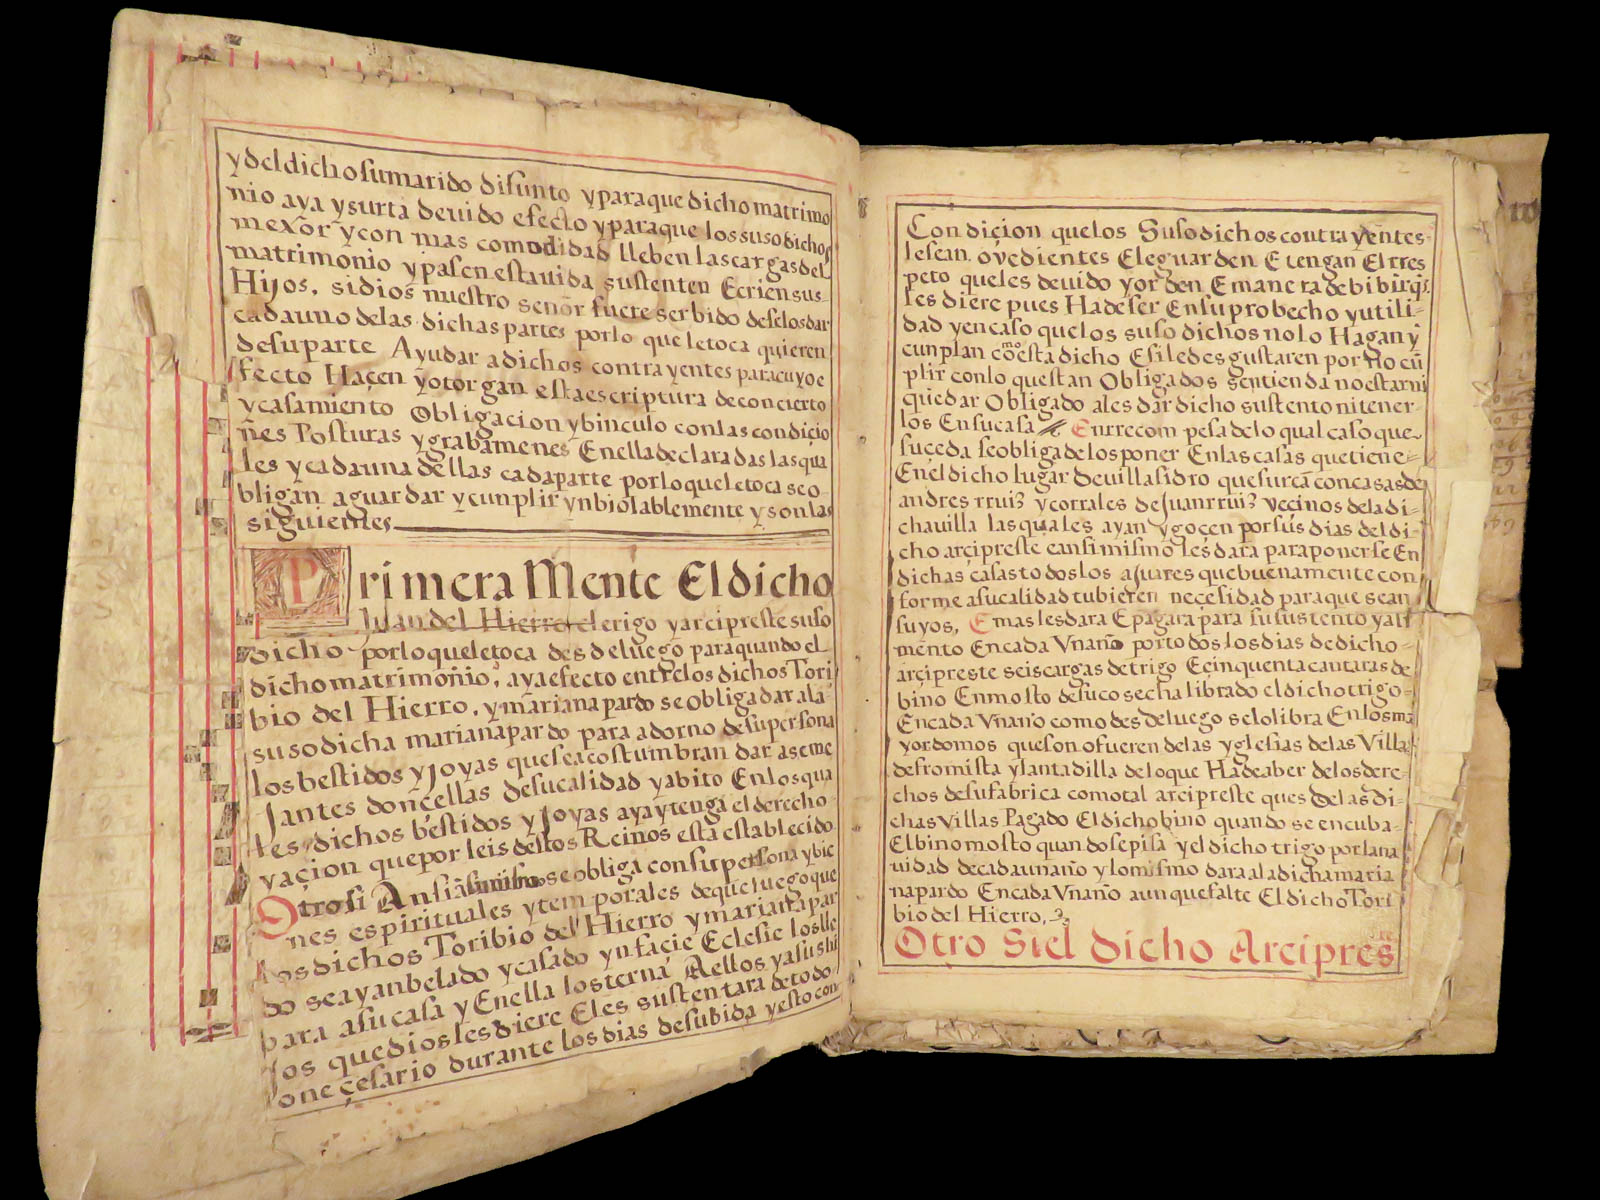 ydeldicho sumarido difunto yparaque dicho matrimo
nio aya ysurta deuido efecto yparaque los susodichos
mexor ycon mas comodidad lleben las cargas del
matrimonio ypasen esta uida sustenten Ecrien sus
Hijos, si dios nuestro señor fuere serbido deselos dar
cada uno de las dichas partes por lo que le toca quieren
de su parte Ayudar a dichos contrayentes para cuyo e
fecto Haçen yotorgan esta escriptura de concierto
y casamiento Obligacion ybinculo con las condiçio
ñes Posturas ygrabamenes En ella declaradas las qua
les y cada una dellas cada parte por lo que le toca se o
bligan aguardar ycunplir ynbiolablemente y son las
siguientes
Primera Mente El dicho
Juan del Hierro clerigo y arcipreste suso
dicho por lo que le toca desde luego para quando el
dicho matrimoñio, aya efecto entre los dichos Tori
bio del Hierro, y mariana pardo se obliga dar a la
susodicha mariana pardo para adorno de su persona
los bestidos y Joyas que se acostumbran dar a seme
Jantes donçellas de su calidad y abito En los qua
les dichos bestidos y Joyas aya y tenga el derecho
yaçion que por leis destos Reinos esta establecido
Otrosi Ansi se obliga con su persona y bie
nes espirituales y temporales de que luego que
los dichos Toribio del Hierro y mariana par
do sea yan belado y casado yn façie Eclesie los lle
para a su casa y En ella los terna Aellos y a sus hi
jos que dios les diere Eles sustentara de todo
lo neçesario durante los dias de su bida y esto con
Condiçion que los Susodichos contrayentes
le sean. ovedientes Ele guarden E tengan El rres
peto que les deuido yorden E manera de bibir q̃
les diere pues Ha de ser En su probecho y utili-
dad y en caso que los susodichos no lo Hagan y
cunplan como esta dicho E si le desgustaren por no cũ
plir con lo que estan Obligados se entienda no estar ni
quedar Obligado a les dar dicho sustento ni tener-
los En su casa Enrrecompesa de lo qual caso que
suceda se obliga de los poner En las casas que tiene
En el dicho lugar de uillasidro que surcan con casas de
andres rruiz y corrales de Juan rruiz veçinos de la di-
cha uilla las quales ayan ygoçen por sus dias del di-
cho arçipreste e ansimismo les dara para ponerse En
dichas casas todos los ajuares que buenamente con
forme a su calidad tubieren neçesidad para que sean
suyos, E mas les dara E pagara para su sustento y ali
mento En cada Vn año por todos los dias de dicho
arçipreste seis cargas de trigo E çinquenta cantaras de
bino En mosto de su cosecha librado el dicho trigo
En cada Vn año como desde luego se lo libra En los ma
yordomos que son o fueren de las yglesias de las Villas
de fromista y lantadilla de lo que Ha de aber de los dere-
chos de su fabrica como tal arcipreste que es de las di-
chas Villas Pagado El dicho bino quando se encuba
El bino mosto quando se pisa y el dicho trigo por la na
uidad de cada un año y lo mismo dara a la dicha maria
na pardo En cada Vn año aunque falte El dicho Tori
bio del Hierro,
Otro Si el dicho Arcipres